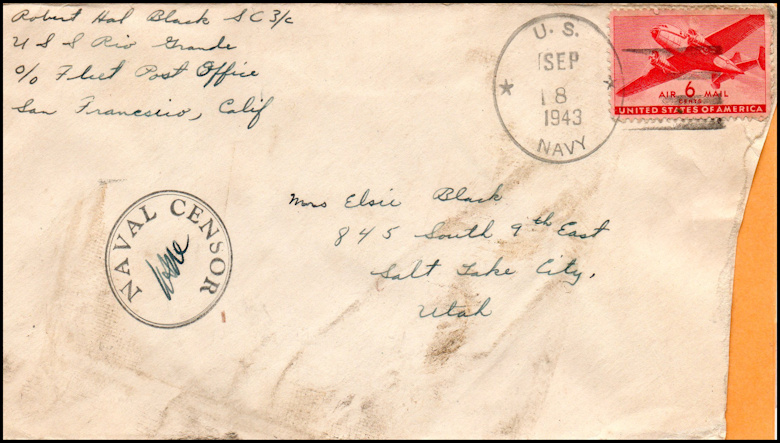 Robert Hal Black SC 3/c
U S S Rio Grande
c/o Fleet Post Office
San Francisco, Calif
U. S.
SEP
18
1943
NAVY
AIR 6 MAIL
CENTS
UNITED STATES OF AMERICA
NAVAL CENSOR
Mrs Elsie Black
845 South 9th East
Salt Lake City,
Utah